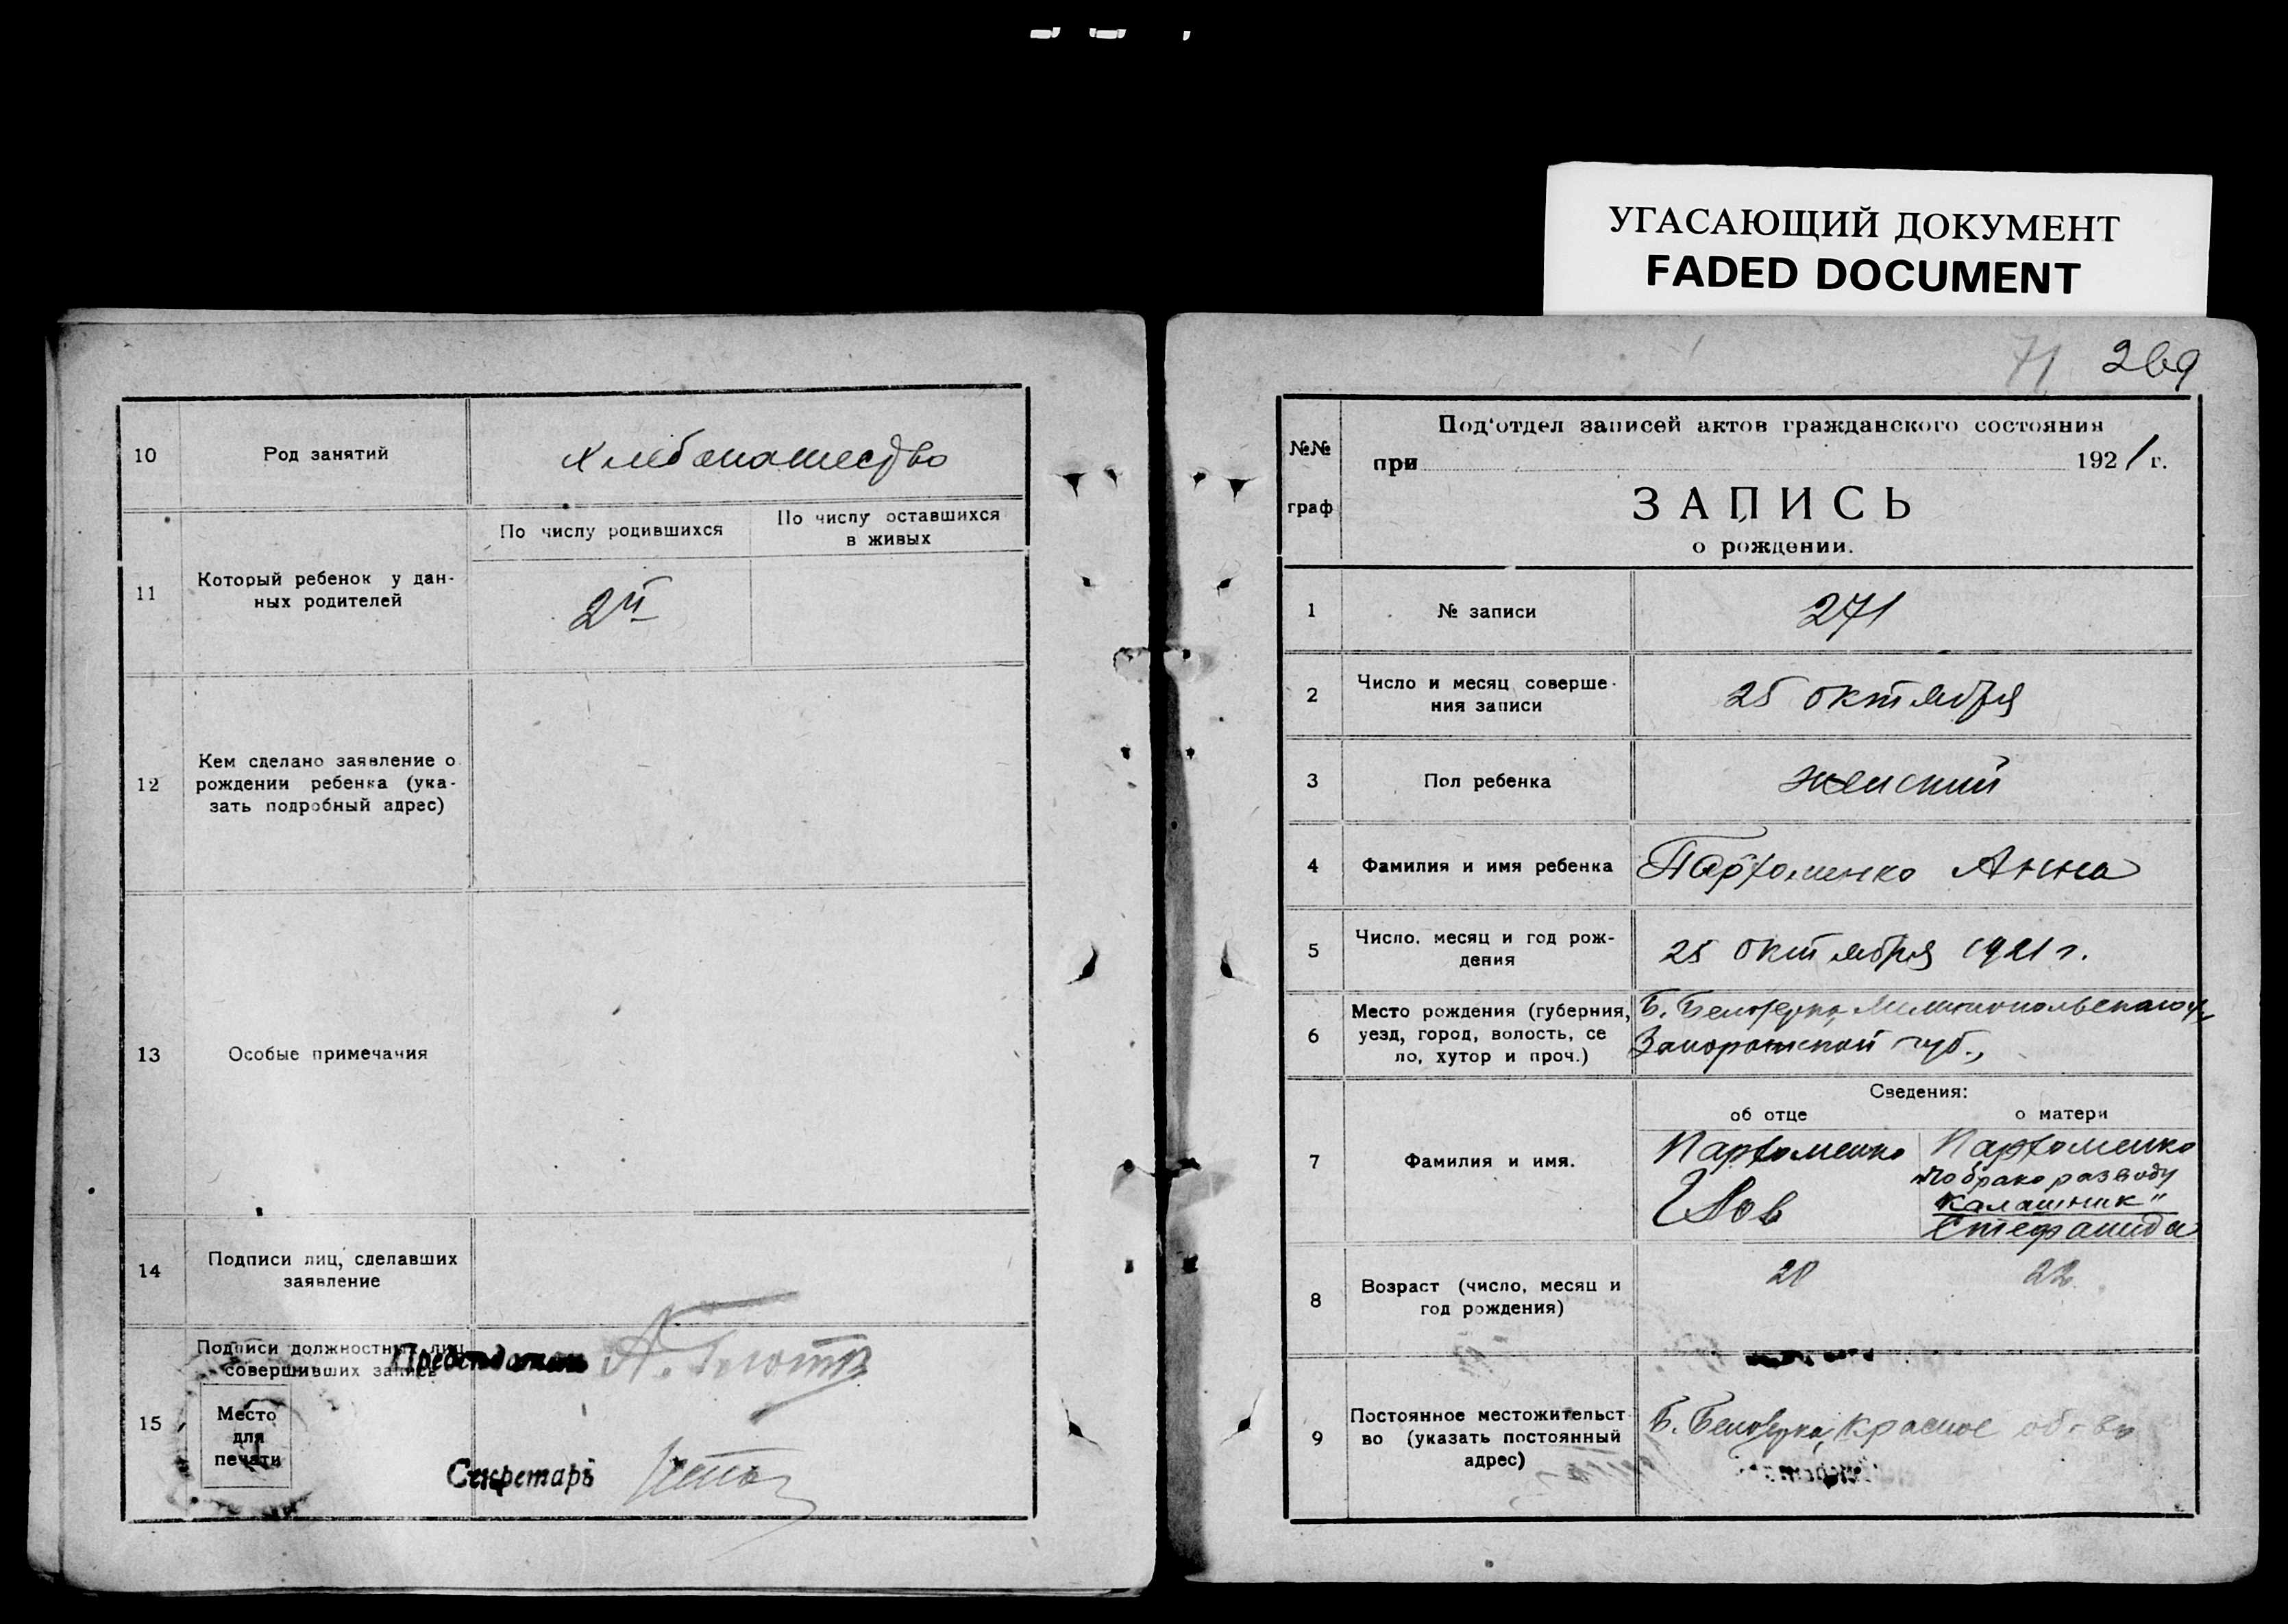 УГАСАЮЩИЙ ДОКУМЕНТ
FADED DOCUMENT
10
Род занятий
хлебопашество
11
Который ребенок у дан-
ных родителей
По числу родившихся
По числу оставшихся
в живых
2й
12
Кем сделано заявление о
рождении ребенка (ука-
зать подробный адрес)
13
Особые примечания
14
Подписи лиц, сделавших
заявление
15
Подписи должностных лиц
совершивших запись
Председатель
Место
для
печати
Секретарь
71 269
№№
граф
Под'отдел записей актов гражданского состояния
при 1921 г.
ЗАПИСЬ
о рождении.
1
№ записи
271
2
Число и месяц соверше-
ния записи
25 октября
3
Пол ребенка
женский
4
Фамилия и имя ребенка
Пархоменко Анна
5
Число, месяц и год рож-
дения
25 октября 1921 г.
6
Место рождения (губерния,
уезд, город, волость, се
ло, хутор и проч.)
Б. Белозерка, Мелитопольского у.,
Запорожской губ.,
7
Фамилия и имя.
Сведения:
об отце
о матери
Пархоменко
Пархоменко
по брако разводу
Калашник"
Стефанида
8
Возраст (число, месяц и
год рождения)
20
22
9
Постоянное местожительст
во (указать постоянный
адрес)
Б. Белозерка, Красное об-во